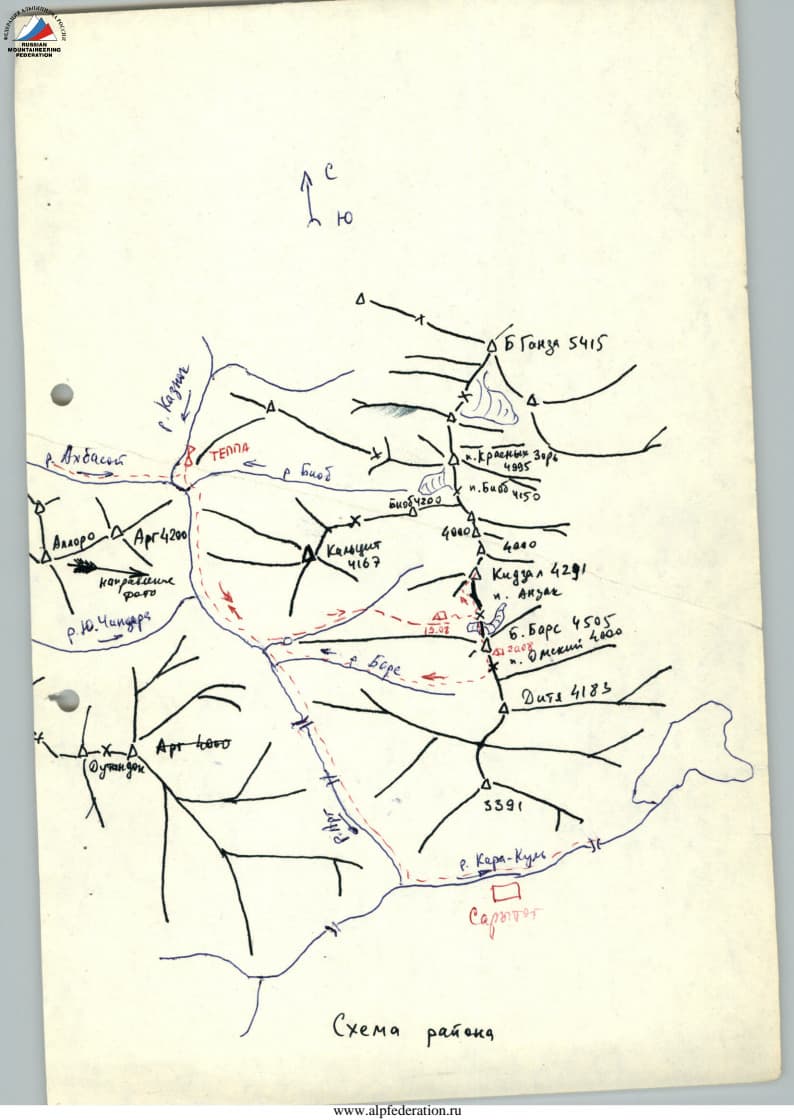 ФЕДЕРАЦИЯ АЛЬПИНИЗМА РОССИИ
RUSSIAN
MOUNTAINEERING
FEDERATION
С
Ю
Б Ганза 5415
р. Казнок
ТЕППА
р. Ахбасой
р Биоб
п. Красных Зорь
4995
п. Биоб 4150
Биоб 4200
4000
4000
Аллоро
Арг 4200
Кальцит
4167
направление
фото
Кидзал 4291
п. Анзак
19.08
р. Ю. Чандара
Б. Барс 4505
20.08
п. Омский 4000
р Барс
Дитя 4183
Арг 4000
Дутандок
3391
р. Арг
р. Кара-Куль
Схема района
www.alpfederation.ru